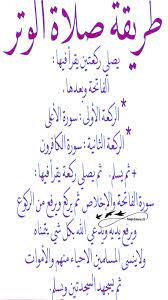 طريقة صلاة الوتر
يصلى ركعتين يقرأ فيها :
الفاتحة وبعدها ،
*الركعة الأولى : سورة الأعلى
*الركعة الثانية : سورة الكافرون
+ ثم يسلم. ثم يصلى ركعة يقرأ فيها :
سورة الفاتحة والإخلاص ثم يركع ويرفع من الركوع
ويرفع يديه ويدعي الله بكل شي يتمناه
ولاينسى المسلمين الاحياء منهم والأموات
ثم يسجد السجدتين ويسلم.